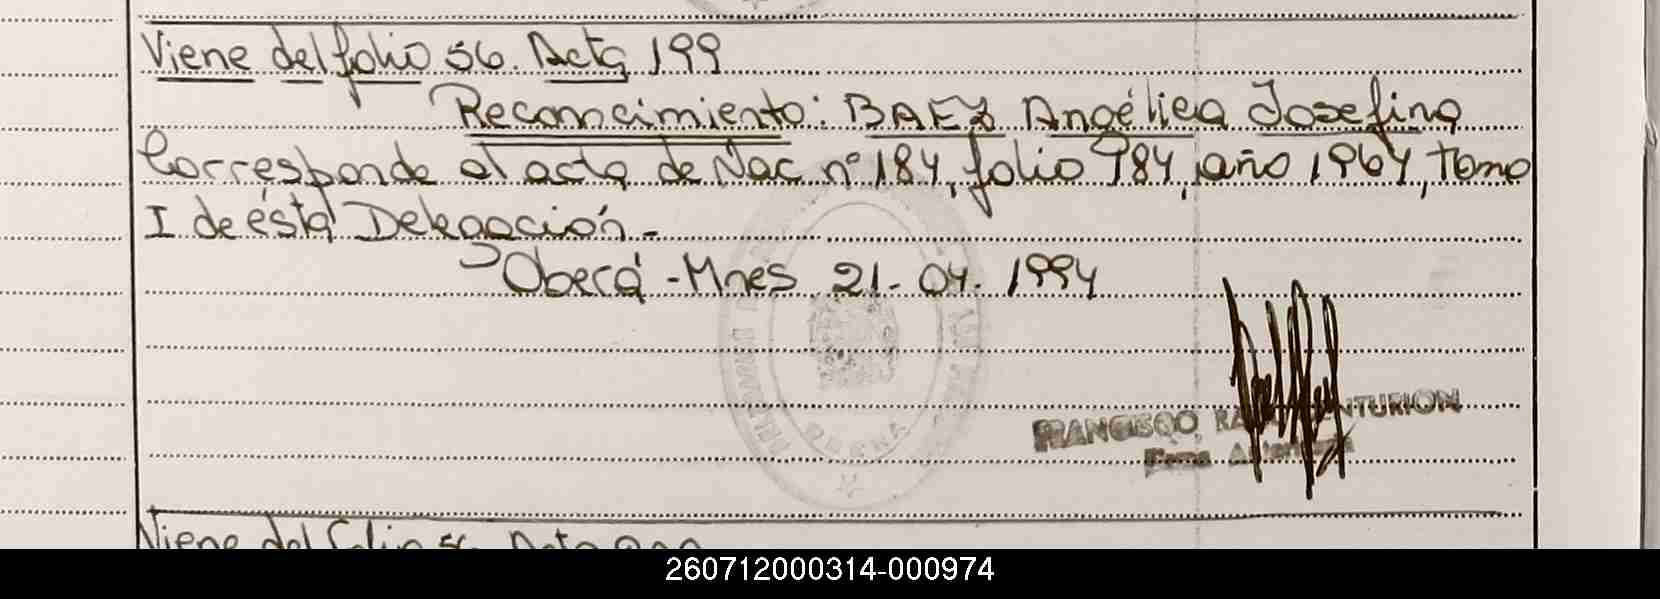 Viene del folio 56. Acta 199
Reconocimiento: BAEZ Angélica Josefina
Corresponde al acta de Nac nº 184, folio 984, año 1964, tomo
I de ésta Delegación.-
Oberá - Mnes 21-04-1994
FRANCISCO CENTURION
Viene del folio 56 Acta 200
260712000314-000974